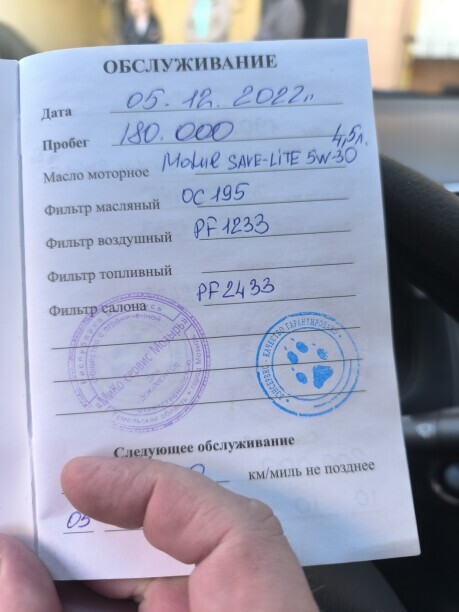 ОБСЛУЖИВАНИЕ
Дата 05.12.2022г.
Пробег 180.000
Масло моторное Mobil SAVE-LITE 5W-30 4,5л.
Фильтр масляный OC 195
Фильтр воздушный PF1233
Фильтр топливный
Фильтр салона PF2433
КАЧЕСТВО ГАРАНТИРОВАНО
МиКо сервис Мозырь
Следующее обслуживание
км/миль не позднее
05